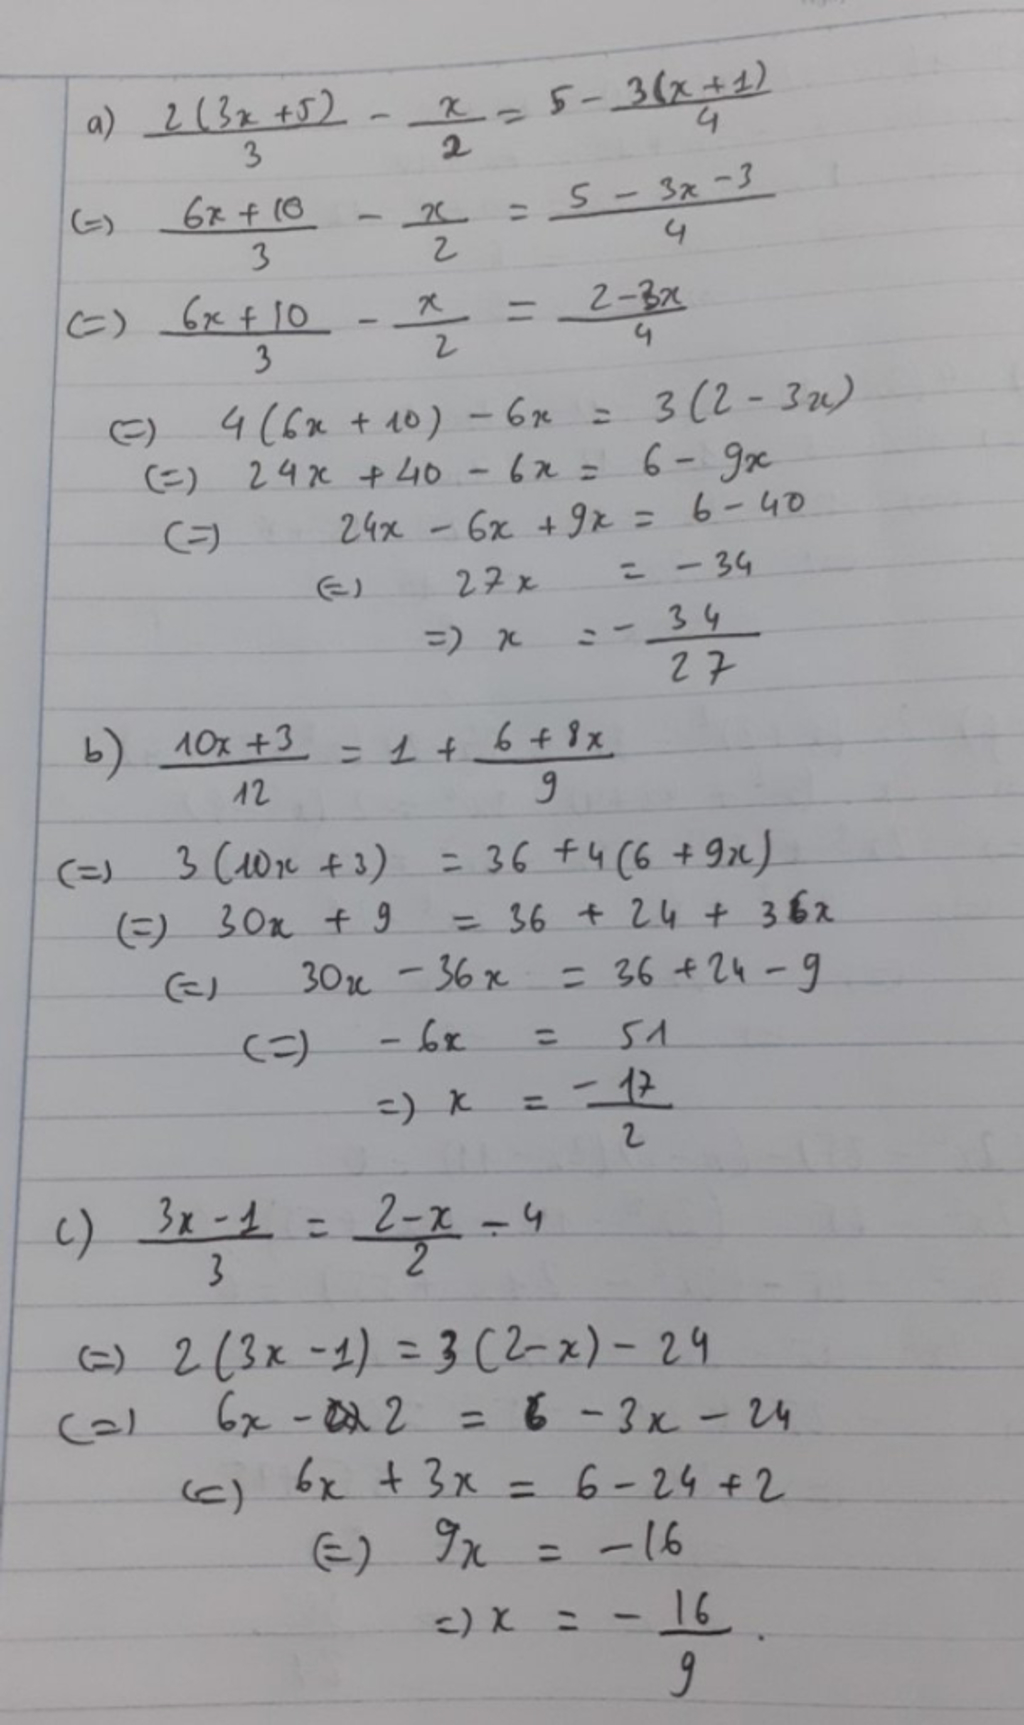 a) \frac{2(3x+5)}{3} - \frac{x}{2} = 5 - \frac{3(x+1)}{4}
(=) \frac{6x+10}{3} - \frac{x}{2} = \frac{5-3x-3}{4}
(=) \frac{6x+10}{3} - \frac{x}{2} = \frac{2-3x}{4}
(=) 4(6x+10) - 6x = 3(2-3x)
(=) 24x + 40 - 6x = 6 - 9x
(=) 24x - 6x + 9x = 6 - 40
(=) 27x = -34
=) x = - \frac{34}{27}
b) \frac{10x+3}{12} = 1 + \frac{6+8x}{9}
(=) 3(10x+3) = 36 + 4(6+9x)
(=) 30x + 9 = 36 + 24 + 36x
(=) 30x - 36x = 36 + 24 - 9
(=) -6x = 51
=) x = \frac{-17}{2}
c) \frac{3x-1}{3} = \frac{2-x}{2} - 4
(=) 2(3x-1) = 3(2-x) - 24
(=) 6x - 2 = 6 - 3x - 24
(=) 6x + 3x = 6 - 24 + 2
(=) 9x = -16
=) x = - \frac{16}{9}.